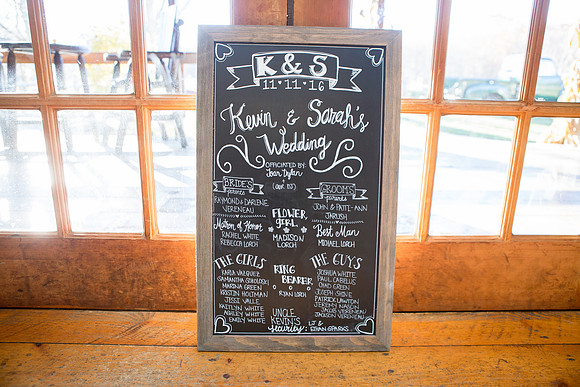 K & S
11·11·16
Kevin & Sarah's
Wedding
OFFICIATED BY:
Joan Dylan
BRIDE'S
parents
RAYMOND & DARLENE
VERENEAU
GROOM'S
parents
JOHN & PATTI-ANN
JARBISH
Matron of Honor
RACHEL WHITE
REBECCA LORCH
FLOWER
GIRL
MADISON
LORCH
Best Man
MICHAEL LORCH
THE GIRLS
KARLA VALQUEZ
SAMANTHA SOKOLOSKI
MARINA GREEN
KRISTIN HOLTMAN
JESSE VALLE
KAITLYN WHITE
ASHLEY WHITE
EMILY WHITE
RING
BEARER
RYAN LORCH
THE GUYS
JOSHUA WHITE
PAUL CABELUS
CHAD GREEN
JOSEPH SHINE
PATRICK LAWTON
JEREMY NASON
JACOB VERENEAU
JACKSON VERENEAU
UNCLE
KEVIN'S
security: LJ &
ETHAN SPARKS